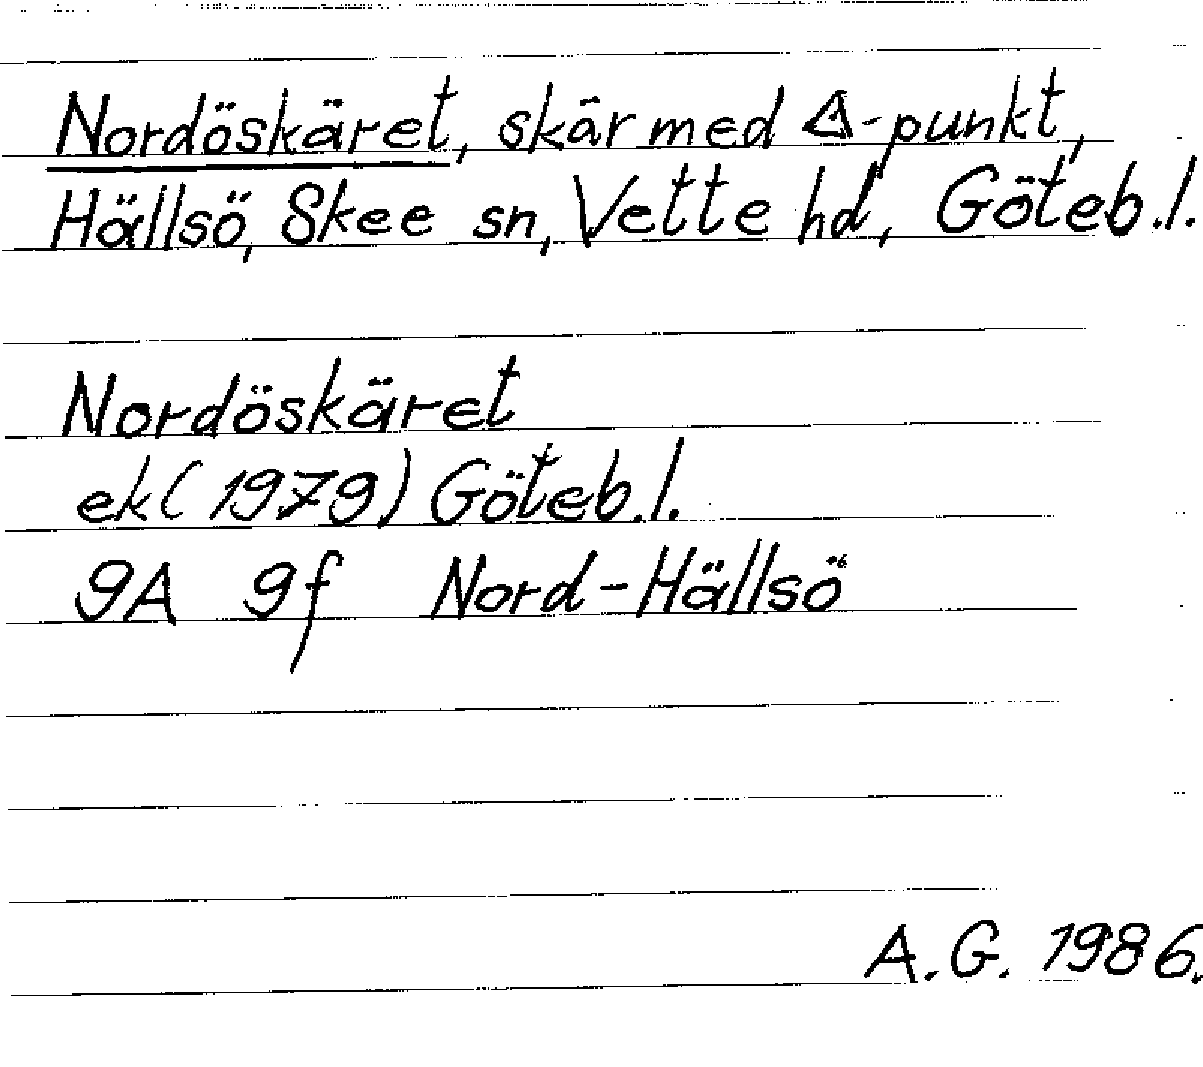 Nordöskäret, skär med Δ-punkt,
Hällsö, Skee sn, Vette hd, Göteb.l.
Nordöskäret
ek (1979) Göteb.l.
9A 9f Nord-Hällsö
A.G. 1986.